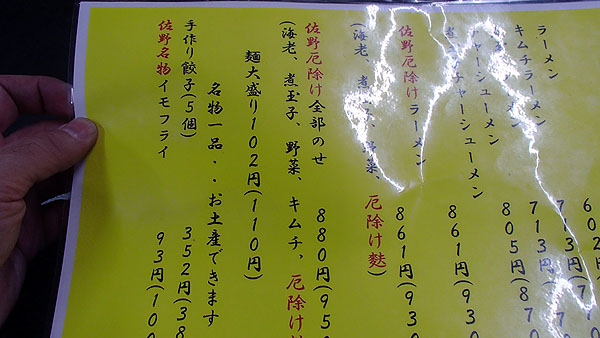 ラーメン 602円
キムチラーメン 713円
ラーメン 713円
チャーシューメン 805円(870
煮玉子チャーシューメン 861円(930
佐野厄除けラーメン 861円(930
(海老、煮玉子、野菜 厄除け麩)
佐野厄除け全部のせ 880円(95
(海老、煮玉子、野菜、キムチ、厄除け
麺大盛り102円(110円)
名物一品・・お土産できます
手作り餃子(5個) 352円(38
佐野名物イモフライ 93円(100